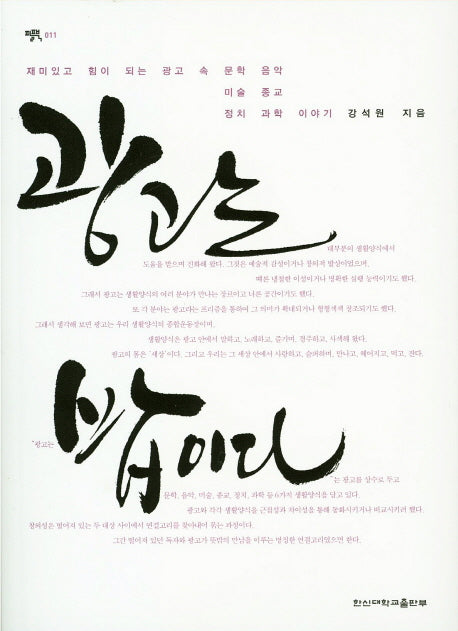 피플북 011
재미있고 힘이 되는 광고 속 문학 음악
미술 종교
정치 과학 이야기 강석원 지음
광고는
대부분의 생활양식에서
도움을 받으며 진화해 왔다. 그것은 예술적 감성이거나 창의적 발상이었으며,
때론 냉철한 이성이거나 명확한 실행 능력이기도 했다.
그래서 광고는 생활양식의 여러 분야가 만나는 장르이고 나른 공간이기도 했다.
또 각 분야는 광고라는 프리즘을 통하여 그 의미가 확대되거나 형형색색 강조되기도 했다.
그래서 생각해 보면 광고는 우리 생활양식의 종합운동장이며,
생활양식은 광고 안에서 말하고, 노래하고, 즐기며, 경주하고, 사색해 왔다.
광고의 품은 '세상'이다. 그리고 우리는 그 세상 안에서 사랑하고, 슬퍼하며, 만나고, 헤어지고, 먹고, 잔다.
밥이다
"광고는
"는 광고를 상수로 두고
문학, 음악, 미술, 종교, 정치, 과학 등 6가지 생활양식을 담고 있다.
광고와 각각 생활양식을 근접성과 차이성을 통해 동화시키거나 비교시키려 했다.
창의성은 떨어져 있는 두 대상 사이에서 연결고리를 찾아내어 묶는 과정이다.
그간 떨어져 있던 독자와 광고가 뜻밖의 만남을 이루는 멍징한 연결고리였으면 한다.
한신대학교출판부